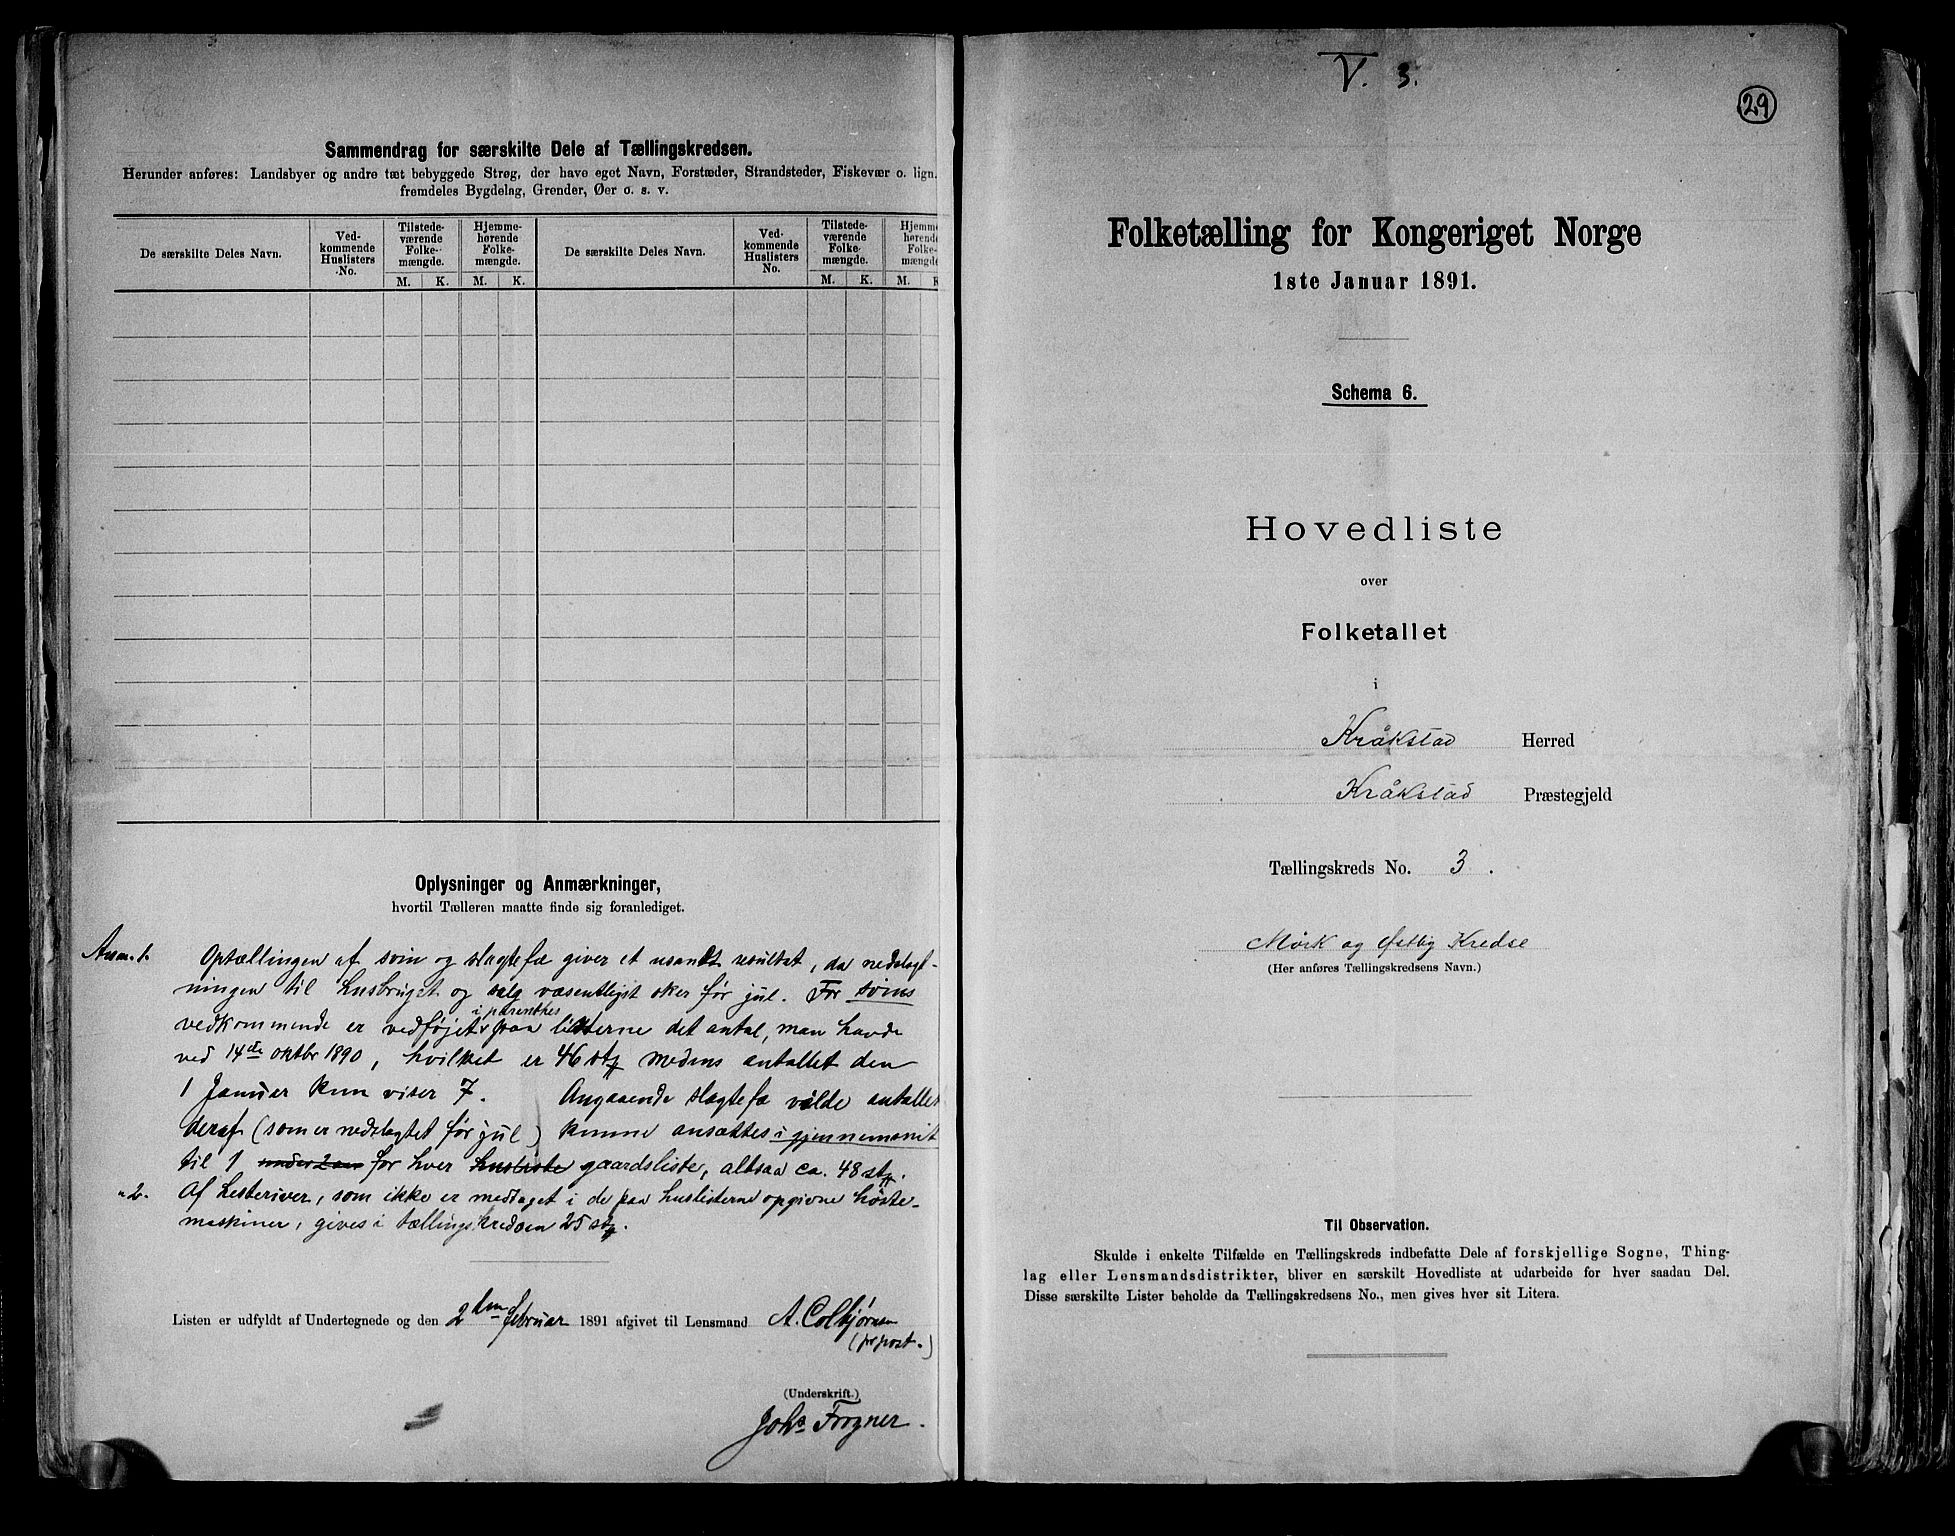 Sammendrag for særskilte Dele af Tællingskredsen.
Herunder anføres: Landsbyer og andre tæt bebyggede Strøg, der have eget Navn, Forstæder, Strandsteder, Fiskevær o. lign.
fremdeles Bygdelag, Grender, Øer o. s. v.
De særskilte Deles Navn.
Ved-
kommende
Huslisters
No.
Tilstede-
værende
Folke-
mængde.
Hjemme-
hørende
Folke-
mængde.
De særskilte Deles Navn.
Ved-
kommende
Huslisters
No.
Tilstede-
værende
Folke-
mængde.
Hjemme
hørende
Folke-
mængde
M. K. M. K. M. K. M. K
Oplysninger og Anmærkninger,
hvortil Tælleren maatte finde sig foranlediget.
Anm. 1. Optællingen af svin og slagtefæ giver et usandt resultat, da nedslagt-
ningen til husbruget og salg væsentligst sker før jul. For svins
i parenthes
vedkommende er vedføjet paa listerne det antal, man havde
ved 14de oktbr 1890, hvilket er 46 stk medens antallet den
1 Januar kun viser 7. Angaaende slagtefæ vilde antallet
deraf (som er nedslagtet før jul) kunne ansættes i gjennemsnit
til 1 for hver husliste gaardsliste, altsaa ca. 48 stk.
" 2. Af hesteriver, som ikke er medtaget i de paa huslisterne opgivne høste-
maskiner, gives i tællingskredsen 25 stk.
Listen er udfyldt af Undertegnede og den 2den februar 1891 afgivet til Lensmand A. Colbjørnsen
(pr post.)
(Underskrift.)
Johs Frogner.
V. 3.
29
Folketælling for Kongeriget Norge
1ste Januar 1891.
Schema 6.
Hovedliste
over
Folketallet
i
Kråkstad Herred
Kråkstad Præstegjeld
Tællingskreds No. 3.
Mørk og Østby Kredse
(Her anføres Tællingskredsens Navn.)
Til Observation.
Skulde i enkelte Tilfælde en Tællingskreds indbefatte Dele af forskjellige Sogne, Thing-
lag eller Lensmandsdistrikter, bliver en særskilt Hovedliste at udarbeide for hver saadan Del.
Disse særskilte Lister beholde da Tællingskredsens No., men gives hver sit Litera.